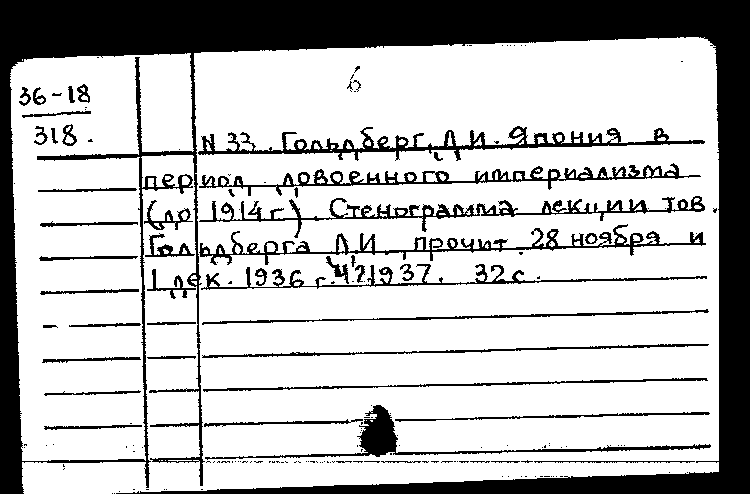 6
36-18
318.
N 33. Гольдберг, Д. И. Япония в
период довоенного империализма
(до 1914 г.). Стенограмма лекции тов.
Гольдберга Д.И., прочит. 28 ноября и
1 дек. 1936 г. 1937. 32 с.